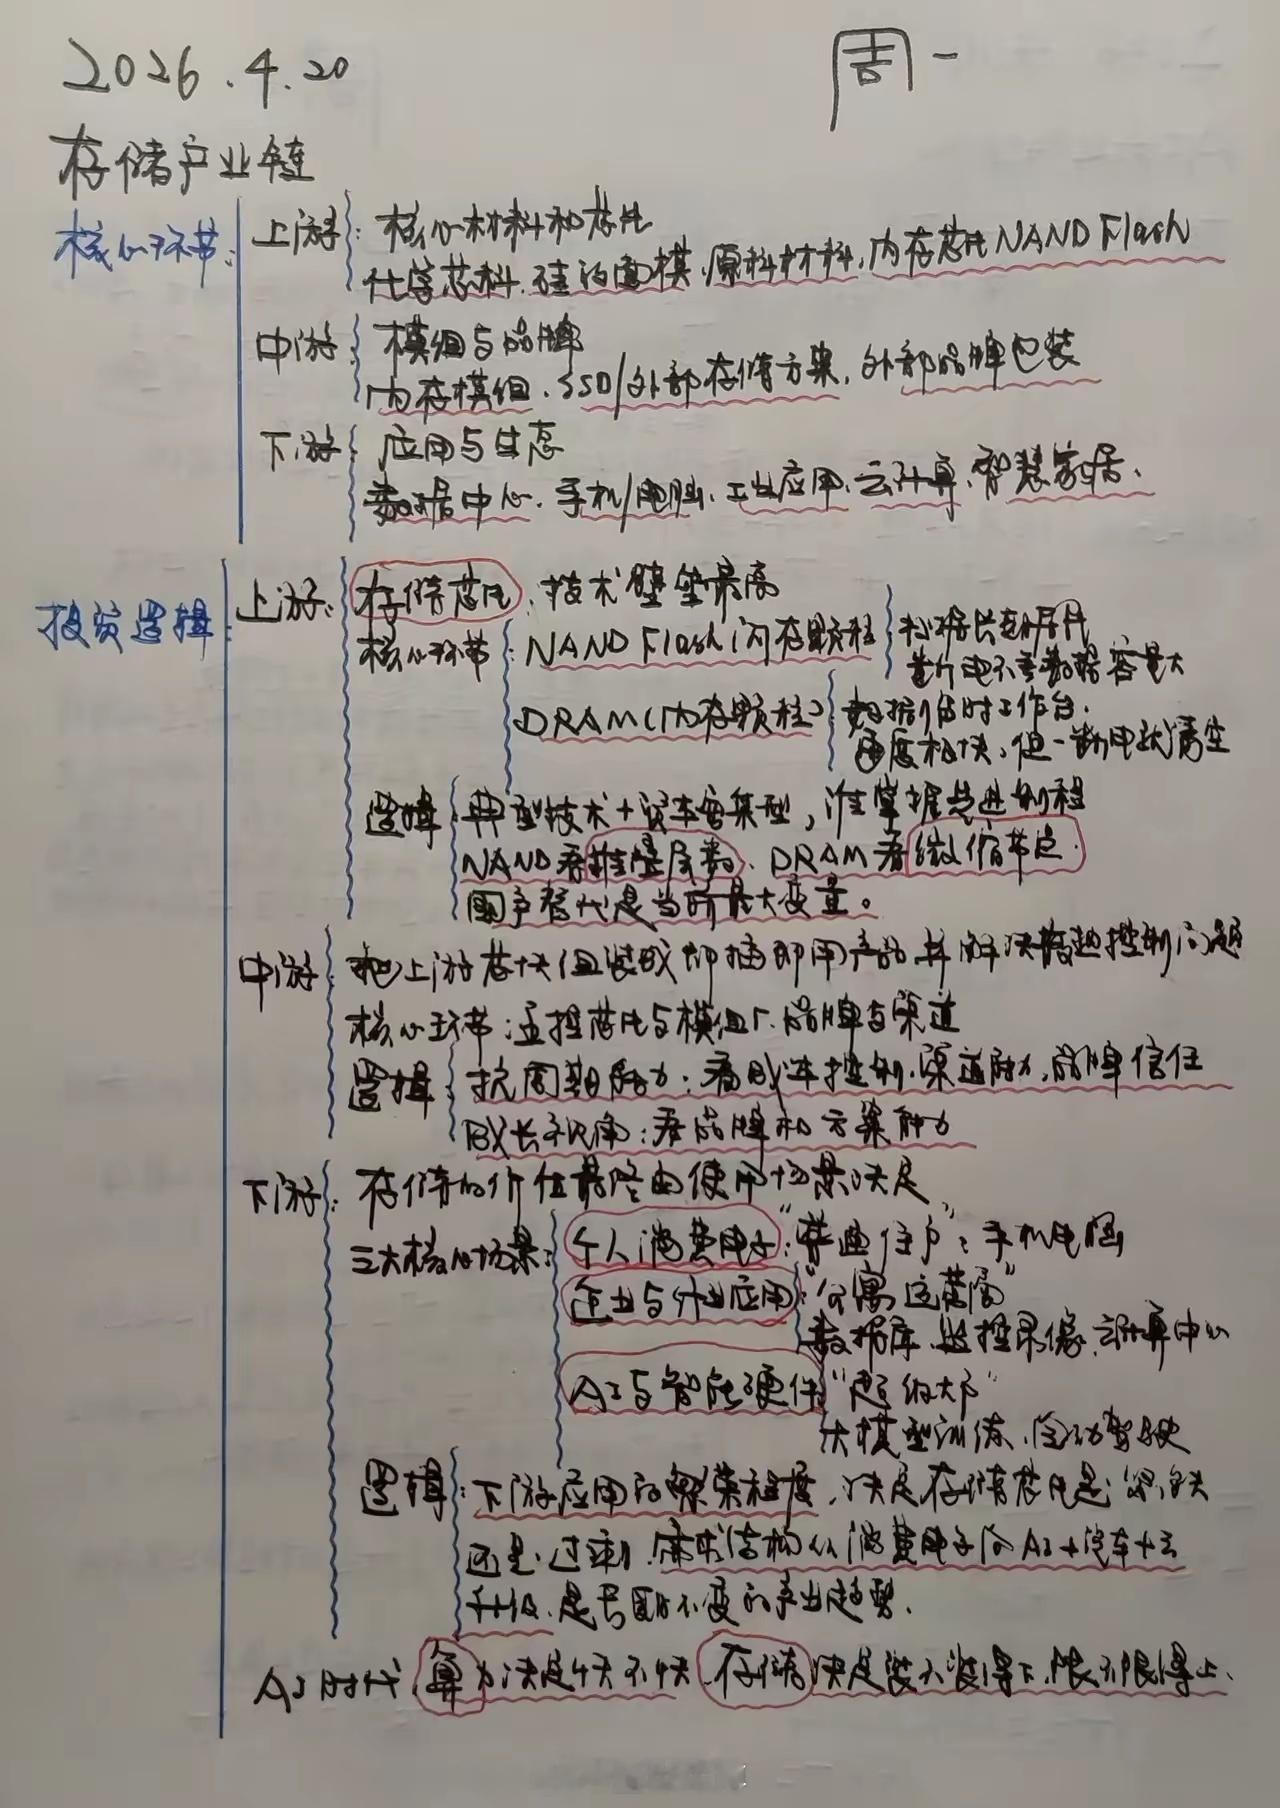 2026.4.20 周一
存储产业链
核心环节: 上游: 核心材料和芯片
化学芯料、硅的圆模、原料材料、内存芯片NAND Flash
中游: 模组与品牌
内存模组、SSD/外部存储方案、外部品牌包装
下游: 应用与生态
数据中心、手机/电脑、工业应用、云计算、智慧家居、
投资逻辑: 上游: 存储芯片: 技术壁垒最高
核心环节: NAND Flash(闪存颗粒
断电不丢数据容量大
DRAM(内存颗粒) 数据临时工作台.
速度极快,但一断电就清空
逻辑: 典型技术+资本密集型,谁掌握先进制程
NAND看堆叠层数、DRAM看微缩节点.
国产替代是当前最大变量。
中游: 把上游芯块组装成即插即用产品,并解决散热控制问题
核心环节: 主控芯片与模组厂、品牌与渠道
逻辑: 抗周期能力: 看成本控制、渠道能力、品牌信任
成长视角: 看品牌和方案能力
下游: 存储的价值最终由使用场景决定
三大核心场景: 个人消费电子: "普通住户": 手机电脑
企业与行业应用: "公寓运营商"
数据库、监控录像、云计算中心
AI与智能硬件 "超级大户"
大模型训练、自动驾驶
逻辑: 下游应用的繁荣程度,决定存储芯片是紧缺
还是过剩、需求结构从消费电子向AI+汽车+云
升级、是长期不变的产业趋势.
AI时代,算力决定快不快、存储决定装不装得下、跟不跟得上.